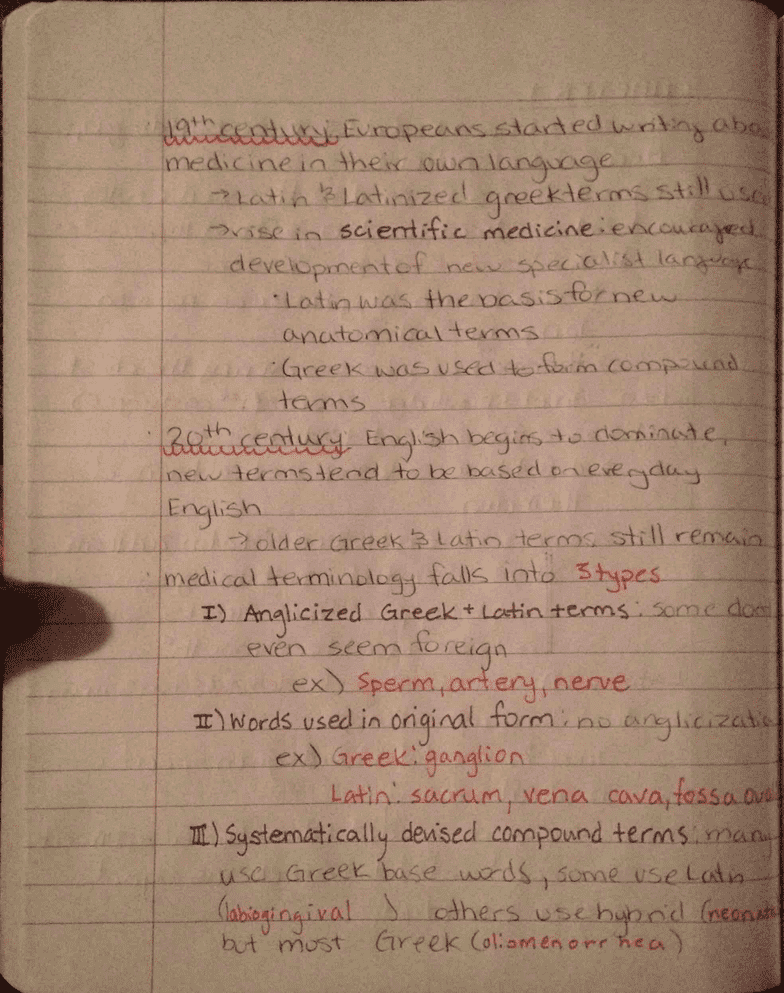 19th century: Europeans started writing abo
medicine in their own language
→ Latin & Latinized greek terms still use
→ rise in scientific medicine: encouraged
development of new specialist language
· Latin was the basis for new
anatomical terms
· Greek was used to form compound
terms
· 20th century: English begins to dominate,
new terms tend to be based on everyday
English
→ older Greek & Latin terms still remain
· medical terminology falls into 3 types
I) Anglicized Greek + Latin terms: some don
even seem foreign
ex) Sperm, artery, nerve
II) Words used in original form: no anglicizatio
ex) Greek: ganglion
Latin: sacrum, vena cava, fossa ova
III) Systematically devised compound terms: many
use Greek base words, some use Latin
(labiogingival ) others use hybrid (neonat
but most Greek (oligmenorrhea)